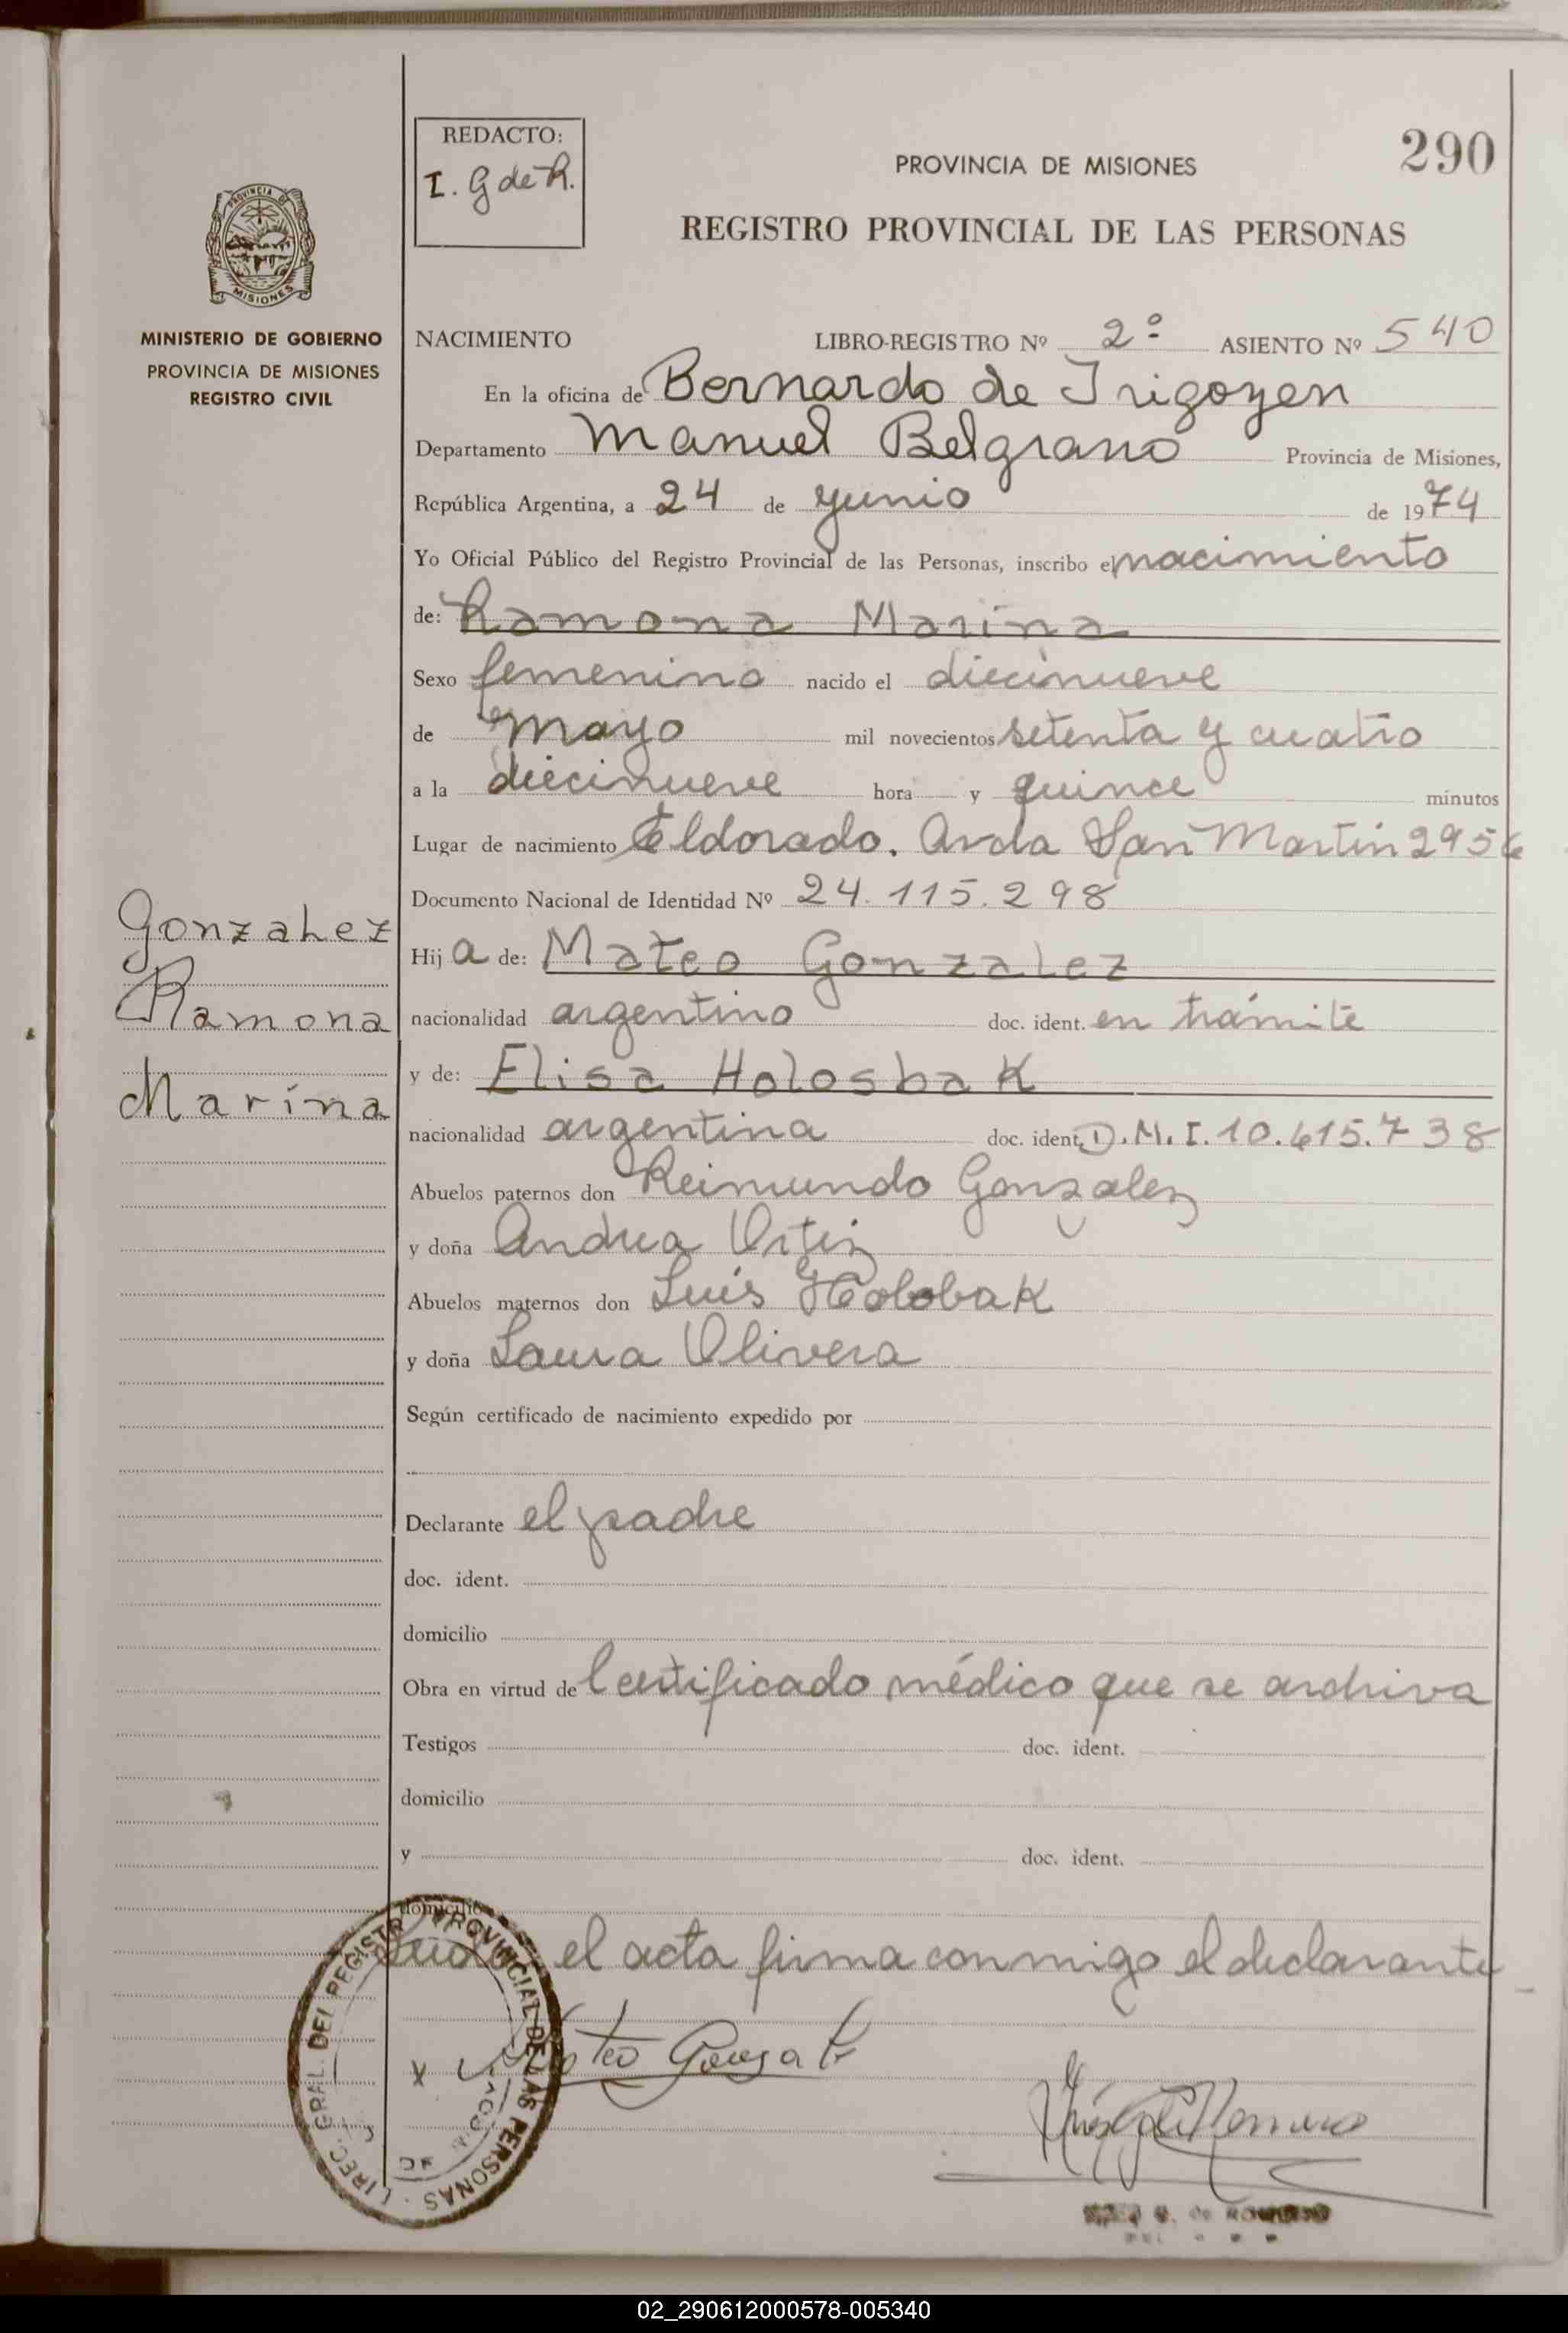 290
REDACTO:
I. G de R.
PROVINCIA DE MISIONES
REGISTRO PROVINCIAL DE LAS PERSONAS
PROVINCIA DE
MISIONES
MINISTERIO DE GOBIERNO
PROVINCIA DE MISIONES
REGISTRO CIVIL
NACIMIENTO LIBRO-REGISTRO Nº 2º ASIENTO Nº 540
En la oficina de Bernardo de Irigoyen
Departamento Manuel Belgrano Provincia de Misiones,
República Argentina, a 24 de yunio de 1974
Yo Oficial Público del Registro Provincial de las Personas, inscribo el nacimiento
de: Ramona Marina
Sexo femenino nacido el diecinueve
de mayo mil novecientos setenta y cuatro
a la diecinueve hora y quince minutos
Lugar de nacimiento Eldorado. Avda San Martin 2956
Documento Nacional de Identidad Nº 24.115.298
Gonzalez
Ramona
Marina
Hija de: Mateo Gonzalez
nacionalidad argentino doc. ident. en trámite
y de: Elisa Holosbak
nacionalidad argentina doc. ident. D.M.I. 10.615.738
Abuelos paternos don Reimundo Gonzalez
y doña Andrea Ortiz
Abuelos maternos don Luis Holobak
y doña Laura Olivera
Según certificado de nacimiento expedido por
Declarante el padre
doc. ident.
domicilio
Obra en virtud de Certificado médico que se archiva
Testigos doc. ident.
domicilio
y doc. ident.
domicilio
el acta firma conmigo el declarante
DIREC. GRAL. DEL REGISTRO PROVINCIAL DE LAS PERSONAS
x Mateo Gonzalez
02_290612000578-005340